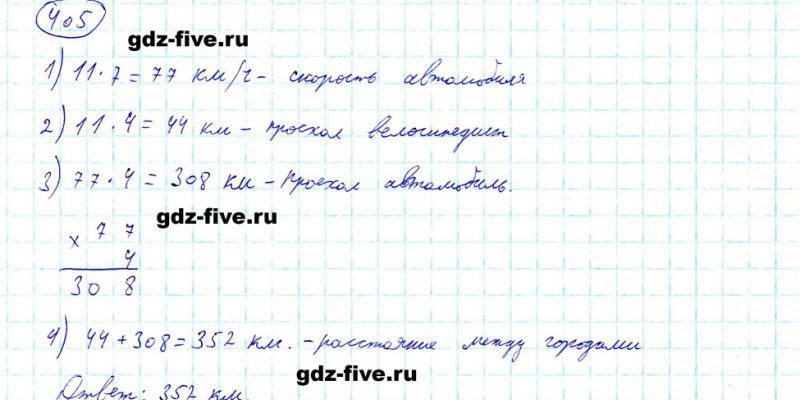 405
gdz-five.ru
1) 11·7=77 км/ч - скорость автомобиля
2) 11·4=44 км - проехал велосипедист
3) 77·4=308 км - проехал автомобиль.
gdz-five.ru
× 77
4
308
4) 44+308=352 км. - расстояние между городами
gdz-five.ru
Ответ: 352 км.